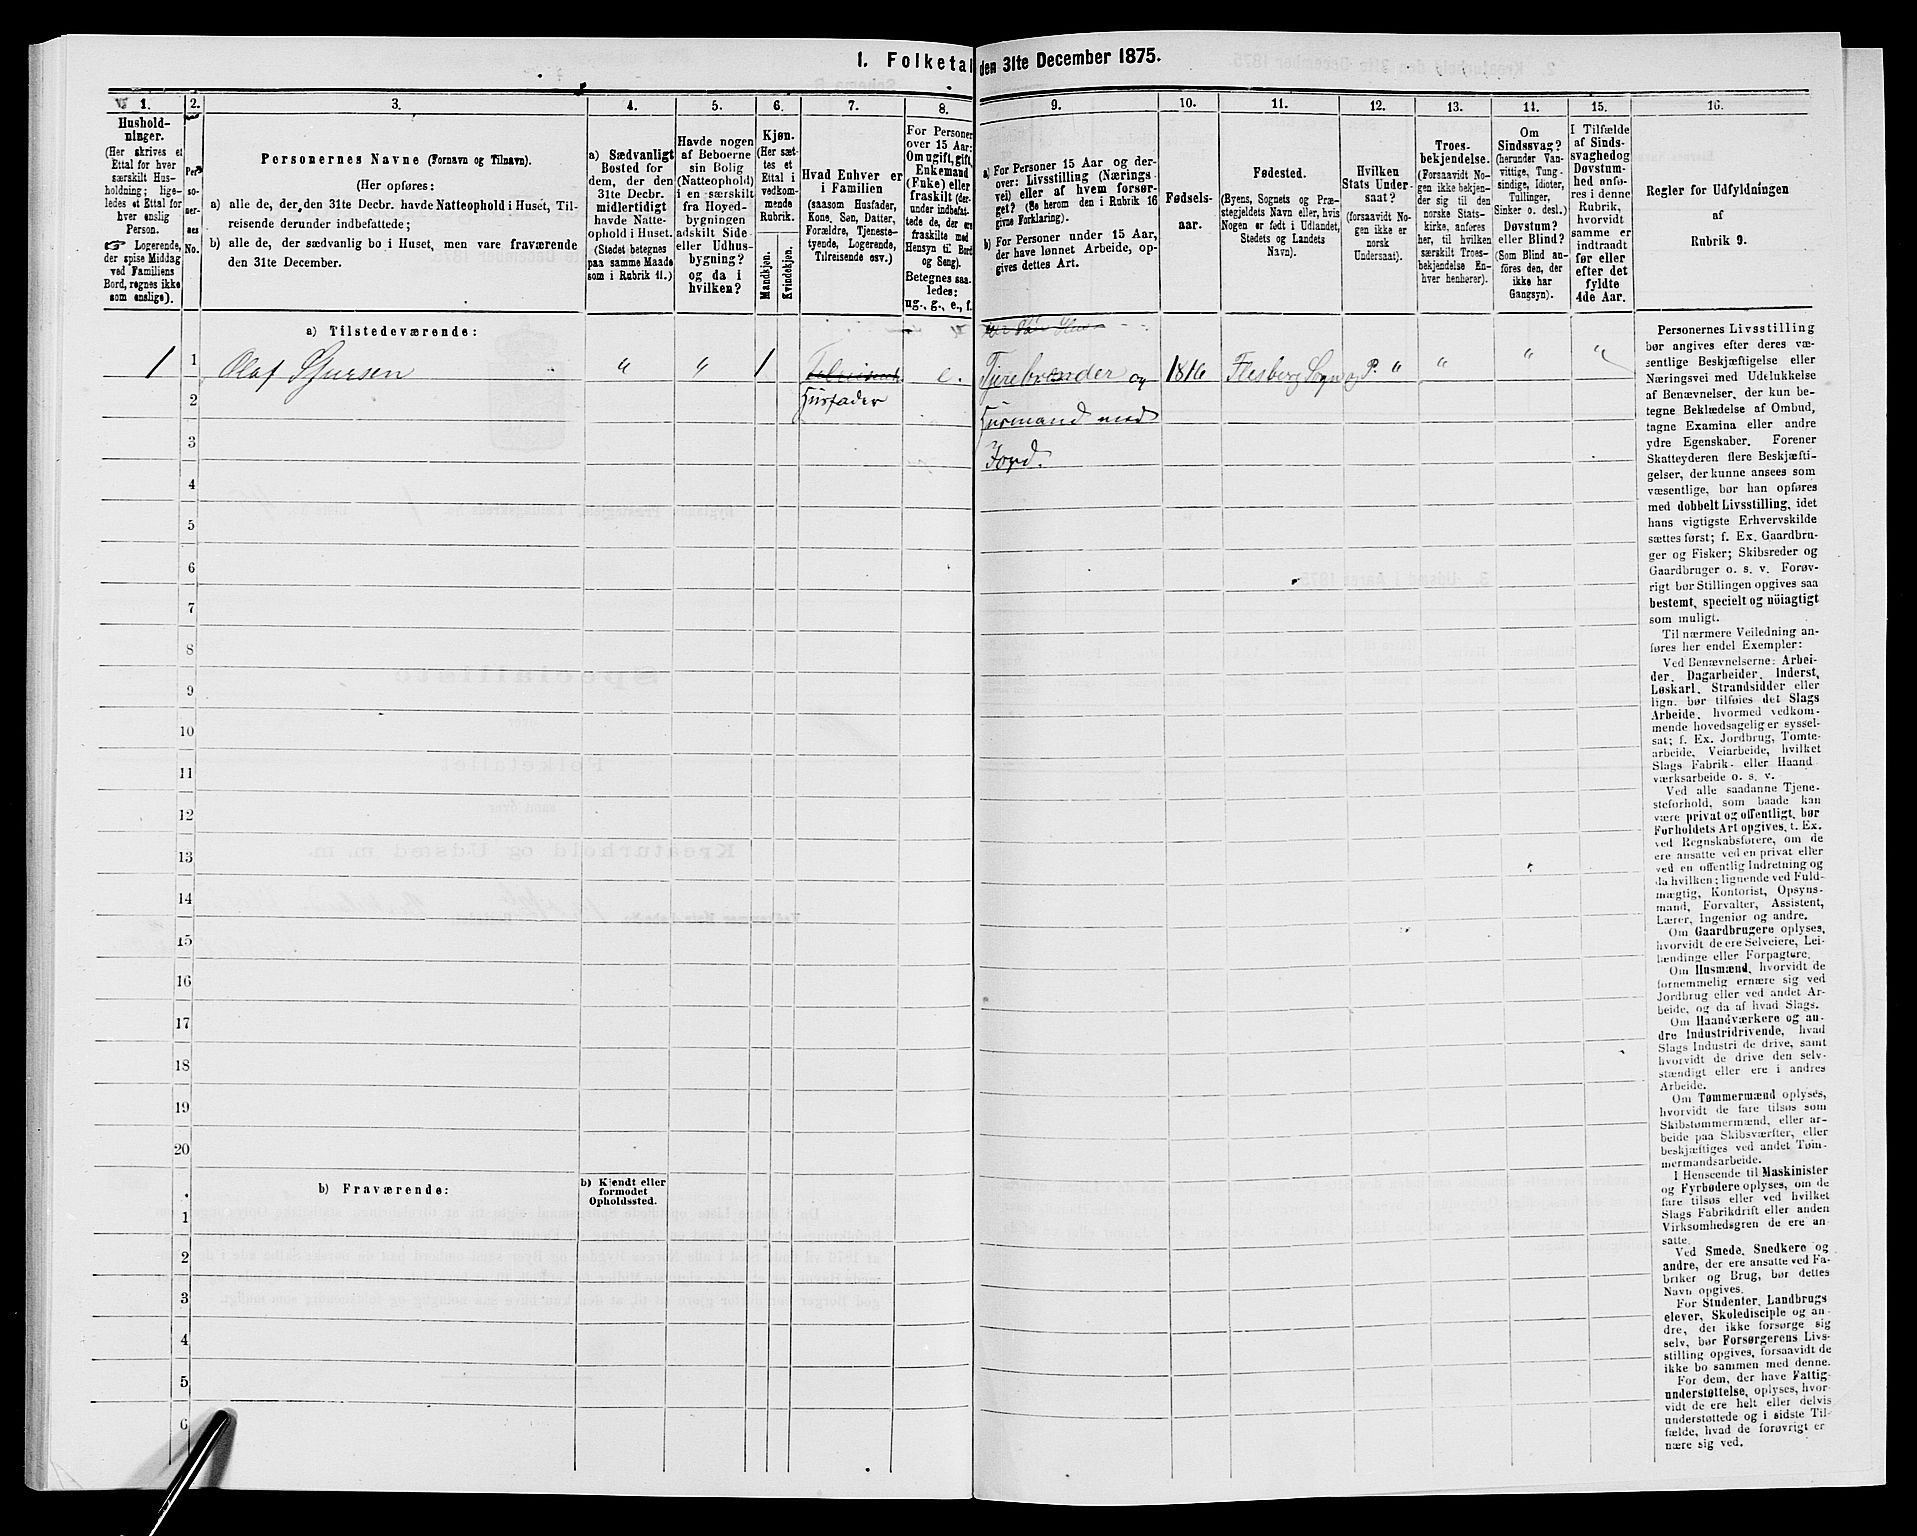 1. Folketal den 31te December 1875.
1. 2. 3. 4. 5. 6. 7. 8. 9. 10. 11. 12. 13. 14. 15. 16.
Hushold-
ninger.
(Her skrives et
Ettal for hver
særskilt Hus-
holdning; lige-
ledes et Ettal for
hver enslig
Person.
☞ Logerende,
der spise Middag
ved Familiens
Bord, regnes ikke
som enslige).
Per-
so-
ner-
nes
No.
Personernes Navne (Fornavn og Tilnavn).
(Her opføres:
a) alle de, der, den 31te Decbr. havde Natteophold i Huset, Til-
reisende derunder indbefattede;
b) alle de, der sædvanlig bo i Huset, men vare fraværende
den 31te December.
a) Sædvanligt
Bosted for
dem, der den
31te Decbr.
midlertidigt
havde Natte-
ophold i Huset.
(Stedet betegnes
paa samme Maade
som i Rubrik 11.)
Havde nogen
af Beboerne
sin Bolig
(Natteophold)
i en særskilt
fra Hoved-
bygningen
adskilt Side-
eller Udhus-
bygning?
og da i
hvilken?
Kjøn.
(Her sæt-
tes et
Ettal i
vedkom-
mende
Rubrik.
Mandkjøn.
Kvindekjøn.
Hvad Enhver er
i Familien
(saasom Husfader,
Kone, Søn, Datter,
Forældre, Tjeneste-
tyende, Logerende,
Tilreisende osv.)
For Personer
over 15 Aar:
Om ugift, gift,
Enkemand
(Enke) eller
fraskilt (der-
under indbefat-
tede de, der ere
fraskilte med
Hensyn til Bord
og Seng).
Betegnes saa-
ledes:
ug., g., e., f.
a) For Personer 15 Aar og der-
over: Livsstilling (Nærings-
vei) eller af hvem forsør-
get? (Se herom den i Rubrik 16
givne Forklaring).
b) For Personer under 15 Aar,
der have lønnet Arbeide, op-
gives dettes Art.
Fødsels-
aar.
Fødested.
(Byens, Sognets og Præ-
stegjeldets Navn eller, hvis
Nogen er født i Udlandet,
Stedets og Landets
Navn).
Hvilken
Stats Under-
saat?
(forsaavidt No-
gen ikke er
norsk
Undersaat).
Troes-
bekjendelse.
(Forsaavidt No-
gen ikke bekjen-
der sig til den
norske Stats-
kirke, anføres
her, til hvilken
særskilt Troes-
bekjendelse En-
hver henhører).
Om
Sindssvag?
(herunder Van-
vittige, Tung-
sindige, Idioter,
Tullinger,
Sinker o. desl.)
Døvstum?
eller Blind?
(Som Blind an-
føres den, der
ikke har
Gangsyn).
I Tilfælde
af Sinds-
svaghed og
Døvstum-
hed anfø-
res i denne
Rubrik,
hvorvidt
samme er
indtraadt
før eller
efter det
fyldte
4de Aar.
Regler for Udfyldningen
af
Rubrik 9.
a) Tilstedeværende:
1 1 Olaf Sjursen " " 1 Tilreisende e. Tyrebrænder og 1816 Flesberg Sogn og P. " " " "
2 Husfader Husmand med
3 Jord.
4
5
6
7
8
9
10
11
12
13
14
15
16
17
18
19
20
b) Fraværende:
b) Kjendt eller
formodet
Opholdssted.
1
2
3
4
5
6
Personernes Livsstilling
bør angives efter deres væ-
sentlige Beskjæftigelse eller
Næringsvei med Udelukkelse
af Benævnelser, der kun be-
tegne Beklædelse af Ombud,
tagne Examina eller andre
ydre Egenskaber. Forener
Skatteyderen flere Beskjæfti-
gelser, der kunne ansees som
væsentlige, bør han opføres
med dobbelt Livsstilling, idet
hans vigtigste Erhvervskilde
sættes først; f. Ex. Gaardbru-
ger og Fisker; Skibsreder og
Gaardbruger o. s. v. Forøv-
rigt bør Stillingen opgives saa
bestemt, specielt og nöiagtigt
som muligt.
Til nærmere Veiledning an-
føres her endel Exempler:
Ved Benævnelserne: Arbei-
der, Dagarbeider, Inderst,
Løskarl, Strandsidder eller
lign. bør tilføies det Slags
Arbeide, hvormed vedkom-
mende hovedsagelig er syssel-
sat; f. Ex. Jordbrug, Tomte-
arbeide, Veiarbeide, hvilket
Slags Fabrik- eller Haand
værksarbeide o. s. v.
Ved alle saadanne Tjene-
steforhold, som baade kan
være privat og offentligt, bør
Forholdets Art opgives, t. Ex.
ved Regnskabsførere, om de
ere ansatte ved en privat eller
ved en offentlig Indretning og
da hvilken; lignende ved Fuld-
mægtig, Kontorist, Opsyns-
mand, Forvalter, Assistent,
Lærer, Ingeniør og andre.
Om Gaardbrugere oplyses,
hvorvidt de ere Selveiere, Lei-
lændinge eller Forpagtere.
Om Husmænd, hvorvidt de
fornemmelig ernære sig ved
Jordbrug eller ved andet Ar-
beide, og da af hvad Slags.
Om Haandværkere og an-
dre Industridrivende, hvad
Slags Industri de drive, samt
hvorvidt de drive den selv-
stændigt eller ere i andres
Arbeide.
Om Tømmermænd oplyses,
hvorvidt de fare tilsøs som
Skibstømmermænd, eller ar-
beide paa Skibsværfter, eller
beskjæftiges ved andet Tøm-
mermandsarbeide.
I Henseende til Maskinister
og Fyrbødere oplyses, om de
fare tilsøs eller ved hvilket
Slags Fabrikdrift eller anden
Virksomhedsgren de ere an-
satte.
Ved Smede, Snedkere og
andre, der ere ansatte ved Fa-
briker og Brug, bør dettes
Navn opgives.
For Studenter, Landbrugs
elever, Skoledisciple og an-
dre, der ikke forsørge sig
selv, bør Forsørgerens Livs-
stilling opgives, forsaavidt de
ikke bo sammen med denne.
For dem, der have Fattig-
understøttelse, oplyses, hvor-
vidt de ere helt eller delvis
understøttede og i sidste Til-
fælde, hvad de forøvrigt er
nære sig ved.